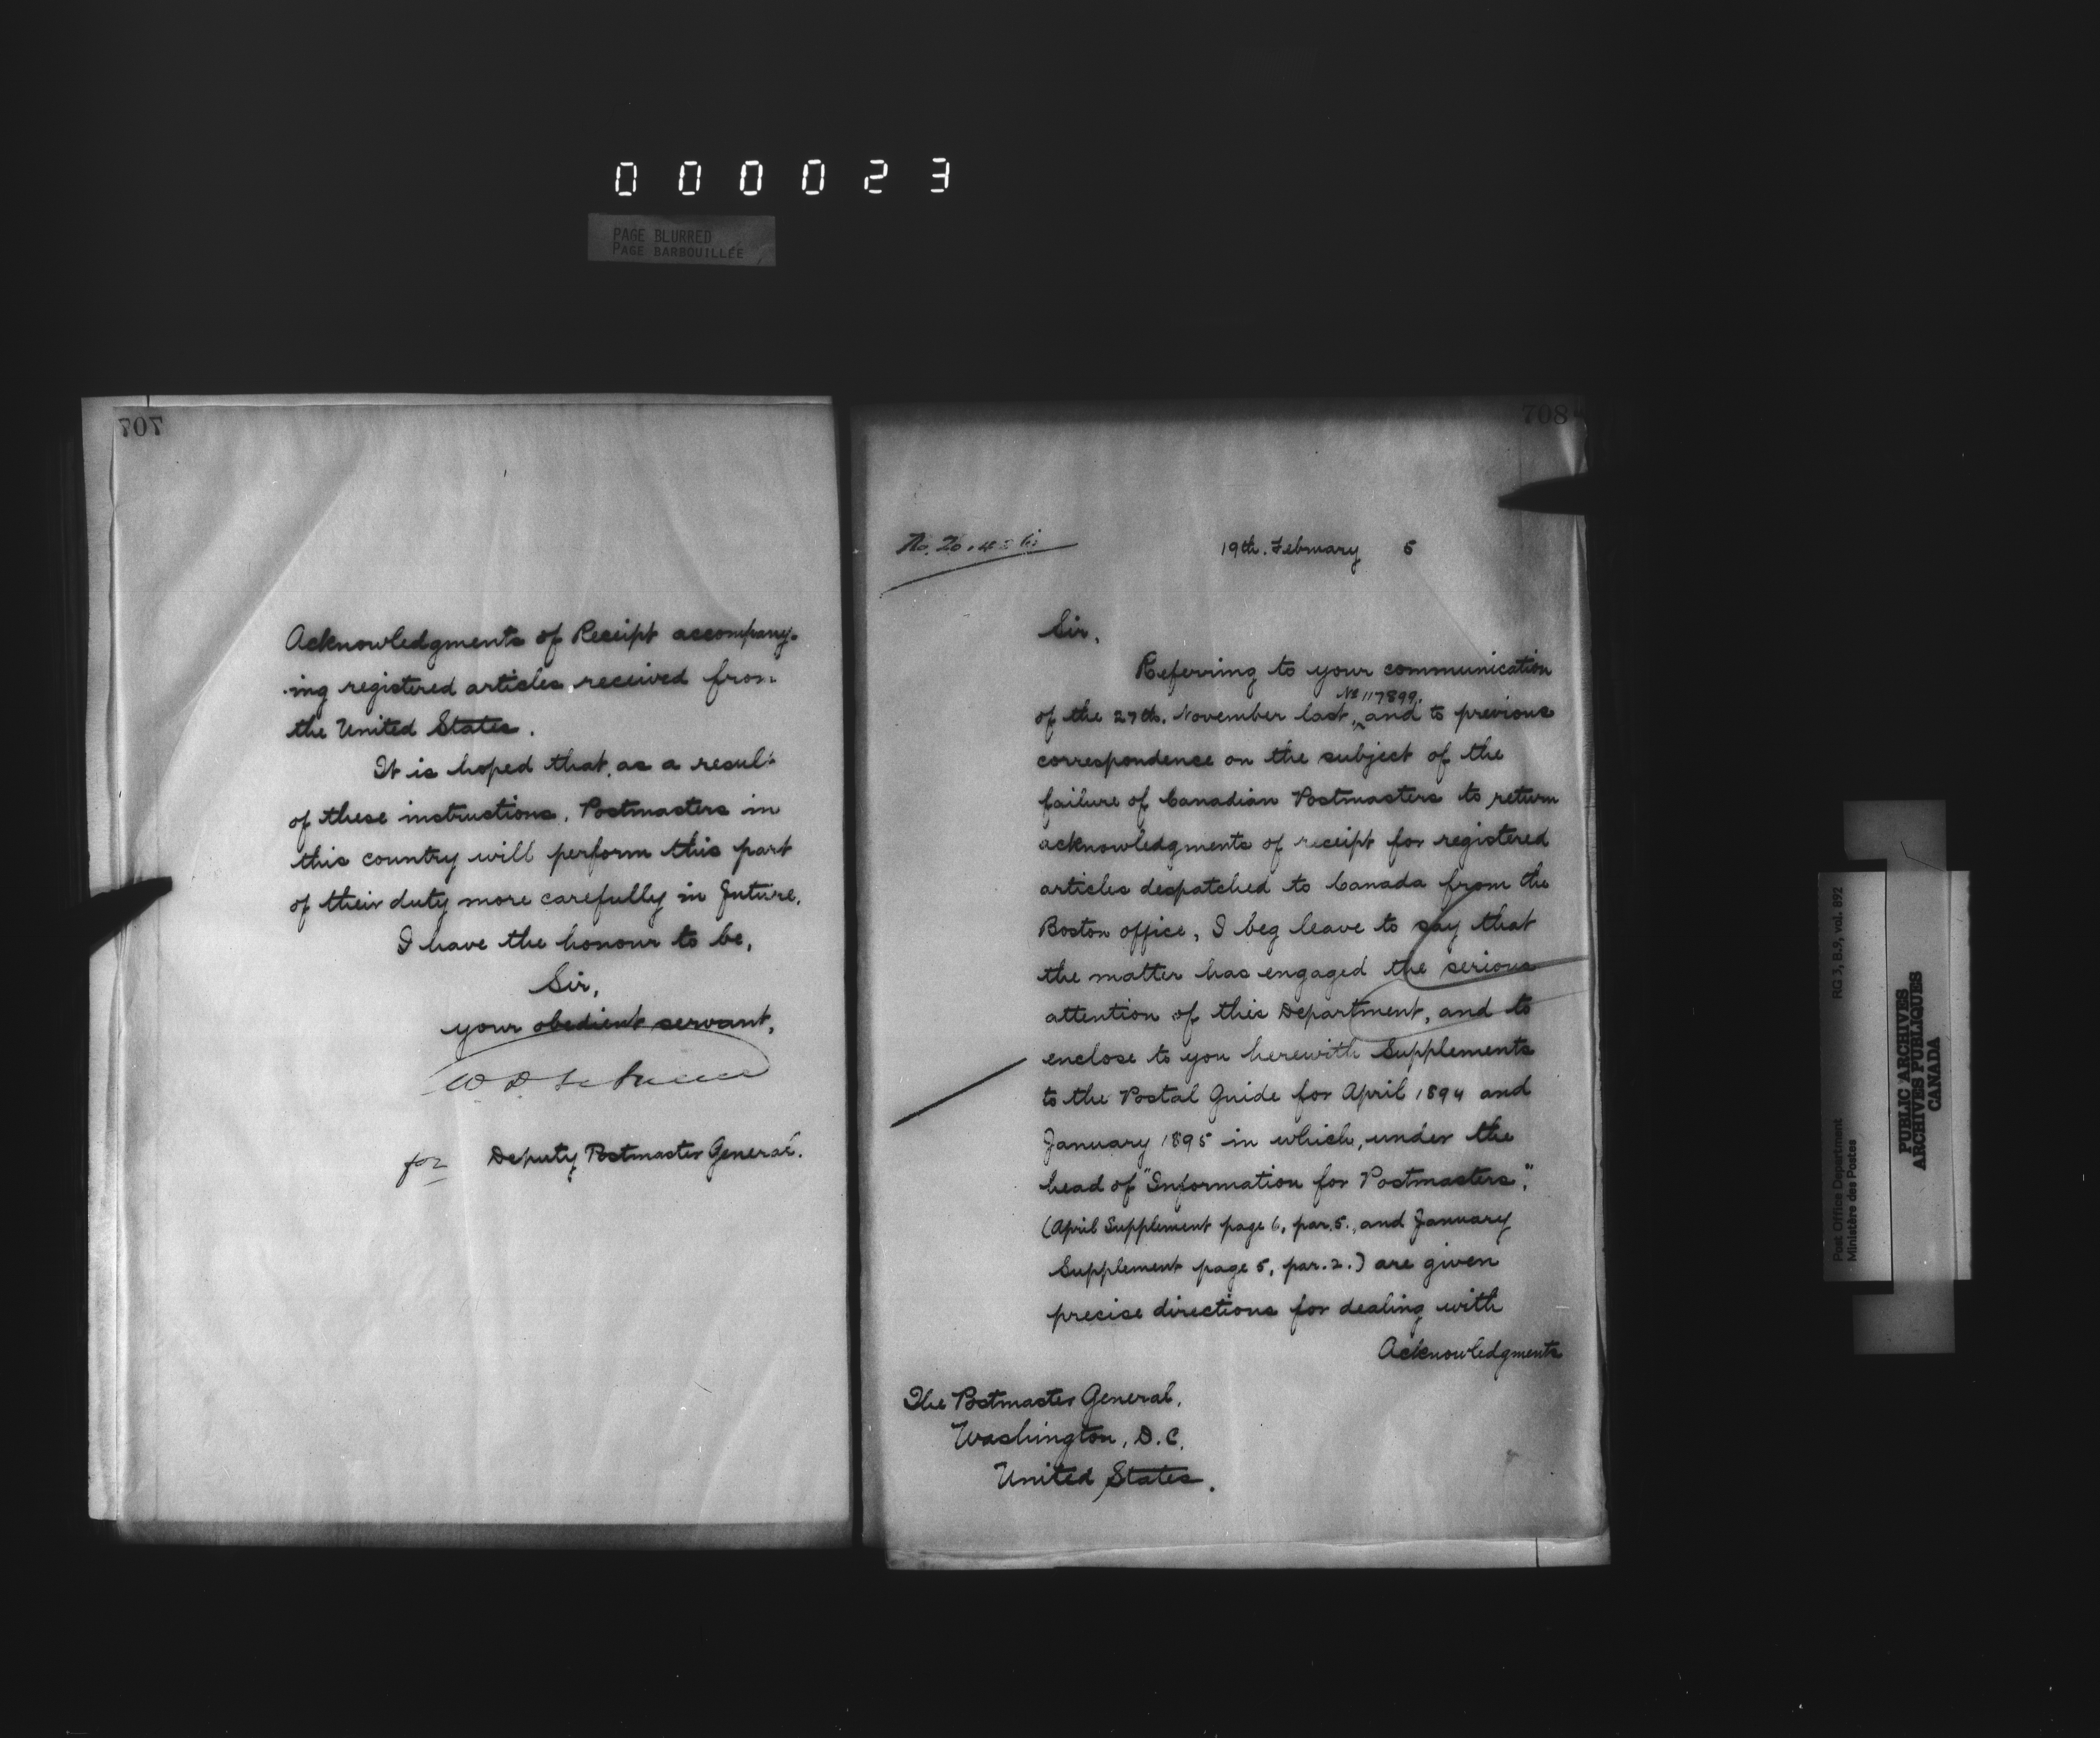 000023
PAGE BLURRED
PAGE BARBOUILLÉE
707
Acknowledgments of Receipt accompany-
-ing registered articles, received from
the United States.
It is hoped that, as a result
of these instructions, Postmasters in
this country will perform this part
of their duty more carefully in future.
I have the honour to be,
Sir,
your obedient servant,
for Deputy Postmaster General.
708
No.
19th. February 5
Sir,
Referring to your communication
No 117899,
of the 27th. November last, and to previous
correspondence on the subject of the
failure of Canadian Postmasters to return
acknowledgments of receipt for registered
articles despatched to Canada from the
Boston office, I beg leave to say that
the matter has engaged the serious
attention of this Department, and to
enclose to you herewith Supplements
to the Postal Guide for April 1894 and
January 1895 in which, under the
head of "Information for Postmasters",
(April Supplement page 6, par. 5., and January
Supplement page 5, par. 2.) are given
precise directions for dealing with
Acknowledgments
The Postmaster General,
Washington, D.C.
United States.
Post Office Department
Ministère des Postes
RG 3, B.9, vol. 892
PUBLIC ARCHIVES
ARCHIVES PUBLIQUES
CANADA